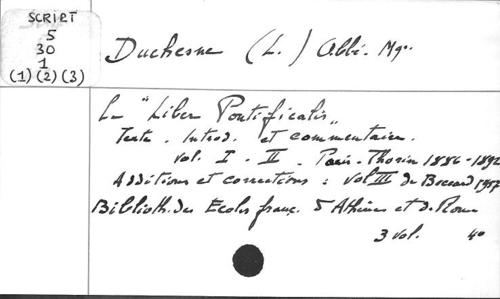 SCRIPT
5
30
1
(1) (2) (3)
Duchesne (L.) Abbé. Mgr.
Le "Liber Pontificalis"
Texte. Introd. et commentaire.
vol. I - II. Paris. Thorin 1886-1892
Additions et corrections : vol III de Boccard 1957
Biblioth. des Ecoles franç. d'Athènes et de Rome
3 vol. 4°